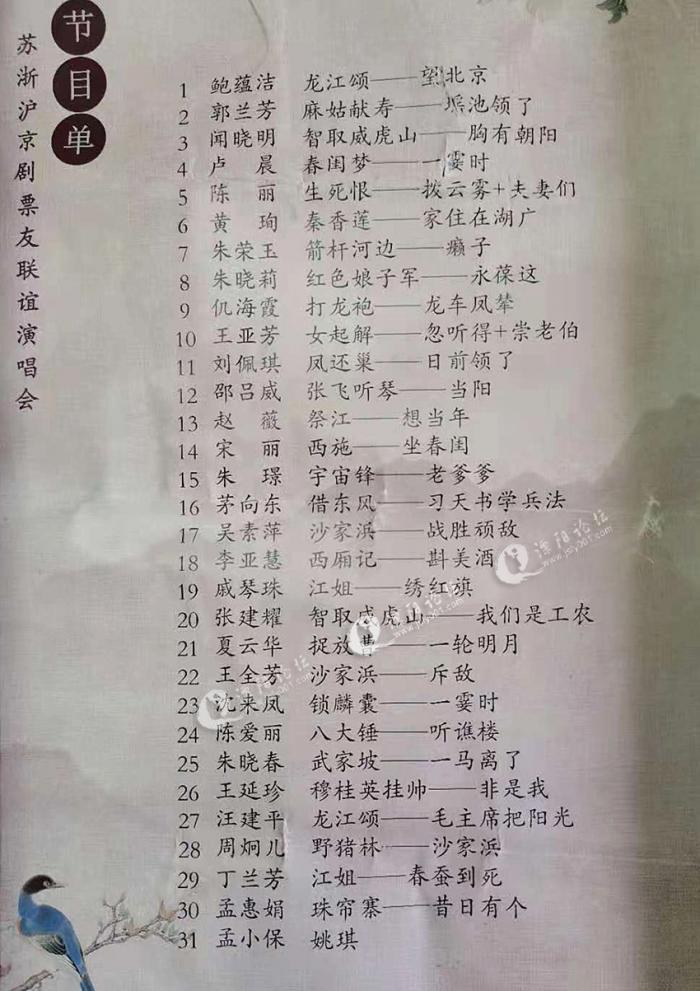 节目单
苏浙沪京剧票友联谊演唱会
1 鲍蕴洁 龙江颂——望北京
2 郭兰芳 麻姑献寿——瑶池领了
3 闻晓明 智取威虎山——胸有朝阳
4 卢晨 春闺梦——一霎时
5 陈丽 生死恨——拨云雾+夫妻们
6 黄珣 秦香莲——家住在湖广
7 朱荣玉 箭杆河边——癞子
8 朱晓莉 红色娘子军——永葆这
9 仉海霞 打龙袍——龙车凤辇
10 王亚芳 女起解——忽听得+崇老伯
11 刘佩琪 凤还巢——日前领了
12 邵吕威 张飞听琴——当阳
13 赵薇 祭江——想当年
14 宋丽 西施——坐春闺
15 朱璟 宇宙锋——老爹爹
16 茅向东 借东风——习天书学兵法
17 吴素萍 沙家浜——战胜顽敌
18 李亚慧 西厢记——斟美酒
19 戚琴珠 江姐——绣红旗
20 张建耀 智取威虎山——我们是工农
21 夏云华 捉放曹——一轮明月
22 王全芳 沙家浜——斥敌
23 沈来凤 锁麟囊——一霎时
24 陈爱丽 八大锤——听谯楼
25 朱晓春 武家坡——一马离了
26 王延珍 穆桂英挂帅——非是我
27 汪建平 龙江颂——毛主席把阳光
28 周炯儿 野猪林——沙家浜
29 丁兰芳 江姐——春蚕到死
30 孟惠娟 珠帘寨——昔日有个
31 孟小保 姚琪
溧阳论坛
www.jsly001.com
溧阳论坛
www.jsly001.com
溧阳论坛
www.jsly001.com